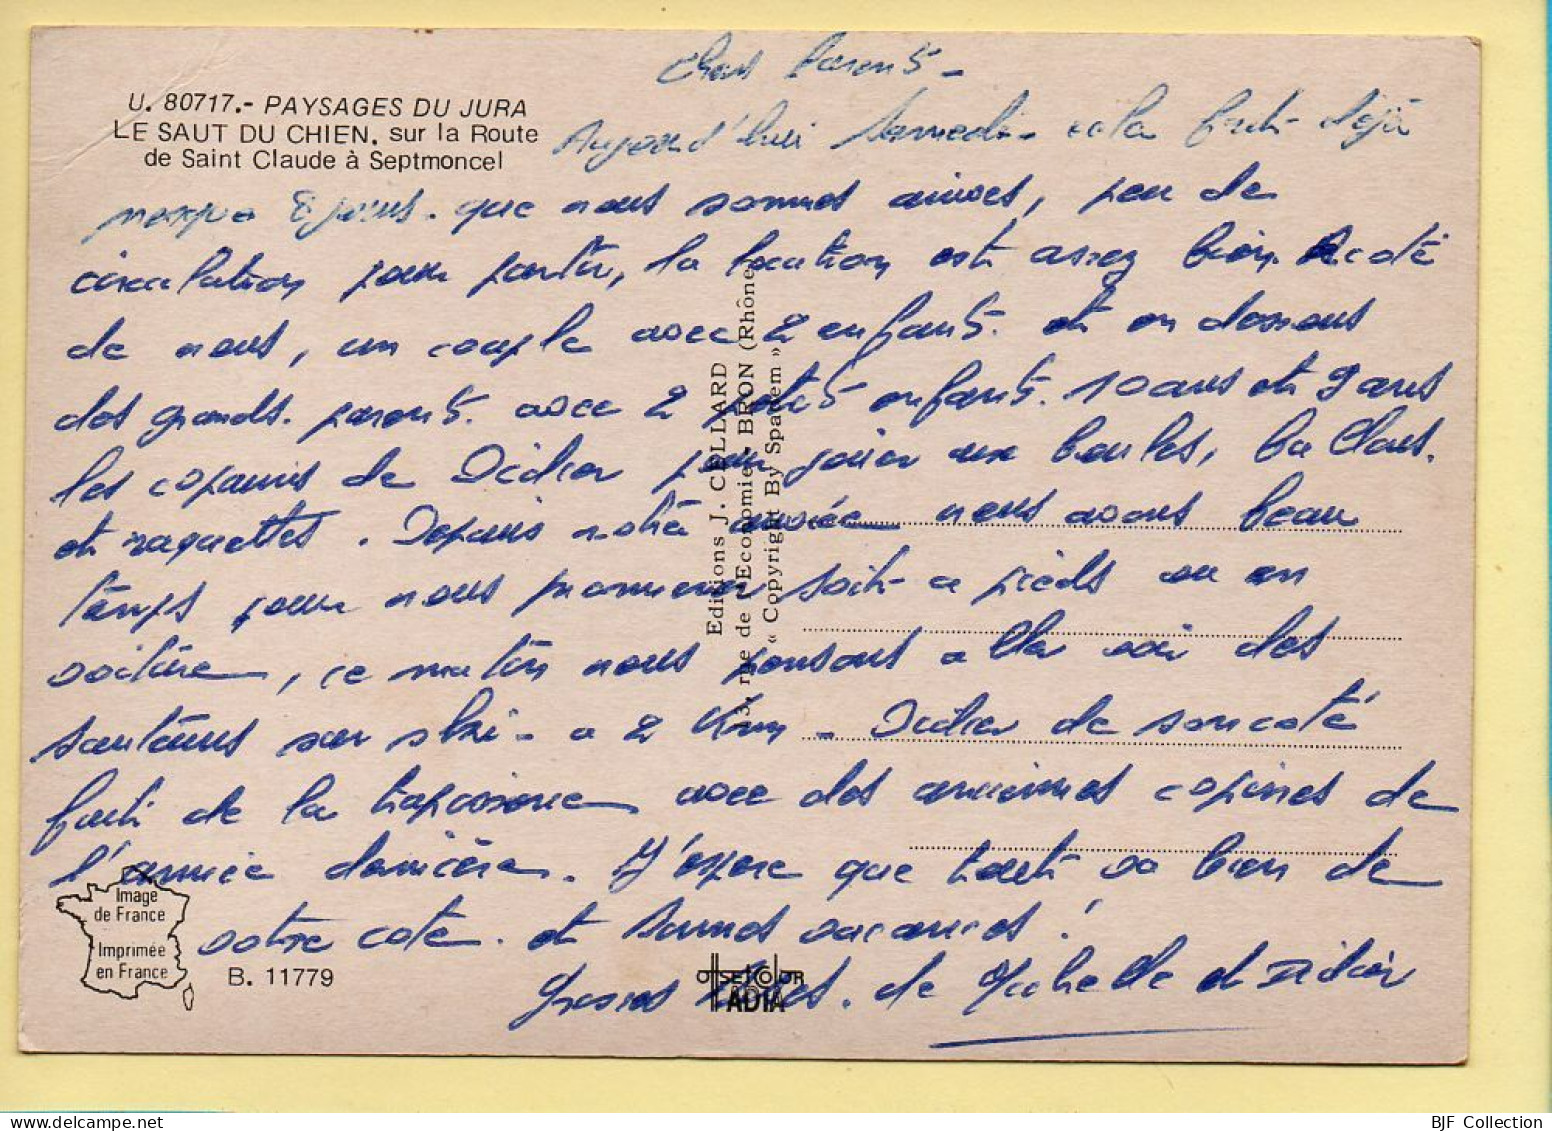 Chers Parents -
U. 80717.- PAYSAGES DU JURA
LE SAUT DU CHIEN, sur la Route
de Saint Claude à Septmoncel
Aujourd'hui Samedi - cela fait déjà
presque 8 jours. que nous sommes arrivés, peu de
circulation pour partir, la location est assez bien. A coté
de nous, un couple avec 2 enfants. et en dessous
des grands. parents. avec 2 petits enfants. 10 ans et 9 ans
les copains de Didier pour jouer aux boules, ballons.
et raquettes. Depuis notre arrivée nous avons beau
temps pour nous promener soit a pieds ou en
voiture, ce matin nous pensons aller voir des
sauteurs sur ski - a 2 Km - Didier de son coté
fait de la tapisserie avec des anciennes copines de
l'année dernière. J'espere que tout va bien de
votre coté. et bonnes vacances!
Grosses bises. de Michelle et Didier
Editions J. CELLARD
3, rue de l'Economie - BRON (Rhône)
« Copyright By Spadem »
Image
de France
Imprimée
en France
B. 11779
OFFSETCOLOR
ADIA
BJF Collection